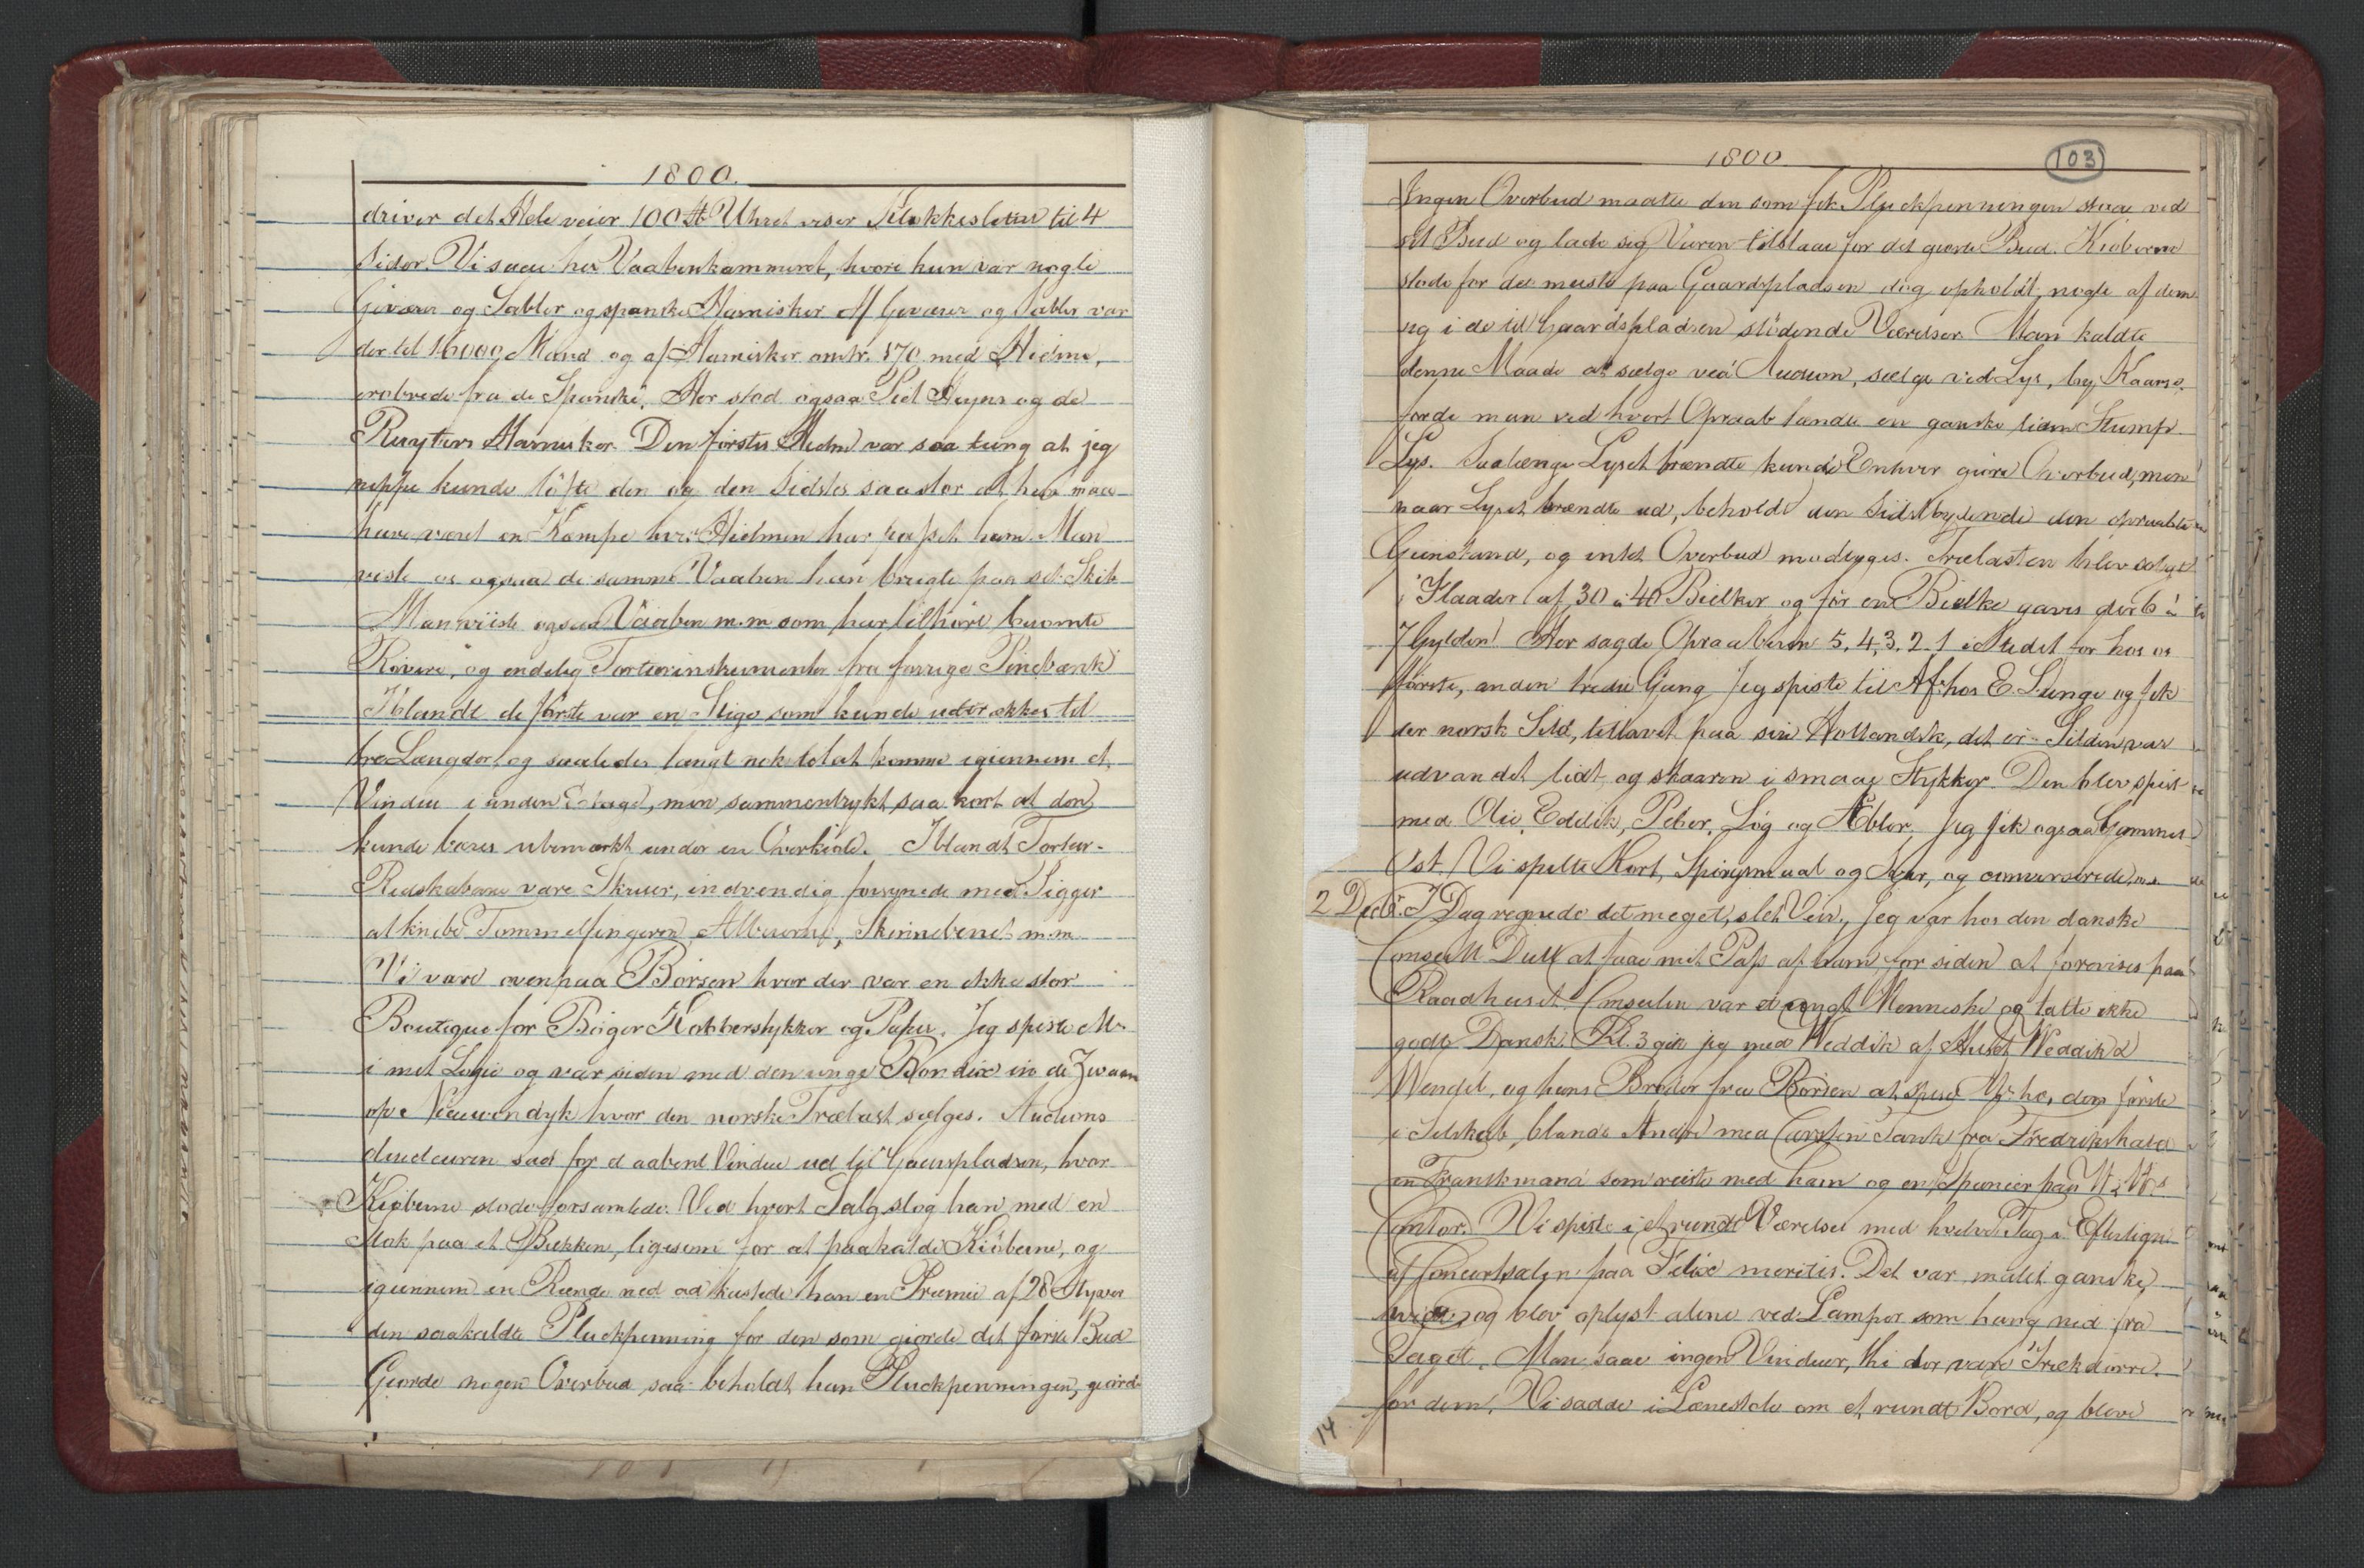 1800.
driver det Hele veier 100 ℔ Uhret viser Klokkeslettet til 4
Sider. Vi saae her Vaabenkammeret, hvori kun var nogle
Geværer og Sabler og spanske Harnisker Af Geværer og Sabler var
der til 16000 Mand og af Harnisker omtr. 170 med Hielme,
erobrede fra de Spanske. Her stod ogsaa Piet Heyns og de
Ruyters Harnisker. Den førstes Hielm var saa tung at jeg
neppe kunde löfte den og den Sidstes saa stor at han maa
have været en Kæmpe hvis Hielmen har passet ham. Man
viste os ogsaa de samme Vaaben han brugte paa sit Skib
Man viiste ogsaa Vaaben m.m som har tilhört berömte
Rövere, og endelig Torturinstrumenter fra forrige Pinebænk
Iblandt de förste var en Stige som kunde udtrækkes til
tre Længder, og saaledes langt nok til at komme igiennem et
Vindue i anden Etage, men sammentrykt saa kort at den
kunde bæres ubemærkt under en Overkiole. Iblandt Tortur-
Redskaberne vare Skruer, indvendig forsynede med Pigger
at knibe Tommelfingeren, Albuerne, Skinnebenet m.m
Vi vare ovenpaa Börsen hvor der var en ikke stor
Boutique for Böger Kobberstykker og Papir. Jeg spiste M.
i mit Logie og var siden med den unge Bondix in de Zwaan
op e Nieuwendyk hvor den norske Trælast sælges. Auctions
directeuren sad for et aabent Vindue ud til Gaardspladsen, hvor
Kiöberne stode forsamlede. Ved hvert Salg slog han med en
Stok paa et Bekken, ligesom for at paakalde Kiöberne, og
igiennem en Rende ned ad kastede han en Præmie af 28 Styver
den saakaldte Pluckpenning for den som giorde det förste Bud
Giorde nogen Overbud saa beholdt han Pluckpenningen, giorde
1800.
103
Ingen Overbud maatte den som fik Pluckpenningen staae ved
sit Bud og lade sig Varen tilslaae for det giorte Bud. Kiöberne
stode for det meste paa Gaardspladsen dog opholdt nogle af dem
sig i de til Gaardspladsen stödende Værelser. Man kaldte
denne Maade at sælge ved Auction, sælge ved Lys, by Kaarse,
fordi man ved hvert Opraab tændte en ganske liden Stump
Lys. Saalænge Lyset brændte kunde Enhver giöre Overbud, men
naar Lyset brændte ud, beholdt den Sidstbydende den opraabte
Gienstand, og intet Overbud modtoges. Trælasten blev solgt
i Flaader af 30 à 40 Bielker og for en Bielke gaves der 6 à
7 Gylden. Her sagde Opraaberen 5, 4, 3, 2. 1 i Stedet for hos os
förste, anden tredie Gang. Jeg spiste til Af: hos E. Lunge og fik
der norsk Sild, tillavet paa sin Hollandsk, det er Silden var
udvandet lidt og skaaren i smaae Stykker. Den blev spist
med Olie, Eddik, Peber, Lög og Æbler. Jeg fik ogsaa Gammel
Ost. Vi spilte Kort, Spörgsmaal og Svar, og converserede os.
2 Decb. I Dag regnede det meget, slet Veir. Jeg var hos den danske
Consul Dull at faae mit Pass af ham for siden at forevises paa
Raadhuset. Consulen var et ungt Menneske og talte ikke
godt Dansk. Kl. 3 gik jeg med Weddik af Huset Weddik &
Wendel, og hans Broder fra Börsen at spise M. hos den förste
i Selskab, blandt Andre med Carsten Tank fra Fredrikshald
en Franskmand som reiste med ham og en Spanier paa W. & W.s
Contor. Vi spiste i et rundt Værelse med hvelvet Tag i Efterligni
af Concertsalen paa Felix meritis. Det var malet ganske
hvidt, og blev oplyst alene ved Lamper som hang ned fra
Taget. Man saae ingen Vinduer, thi der vare Trækdörre
for dem. Vi sadde i Lænestole om et rundt Bord, og bleve
14